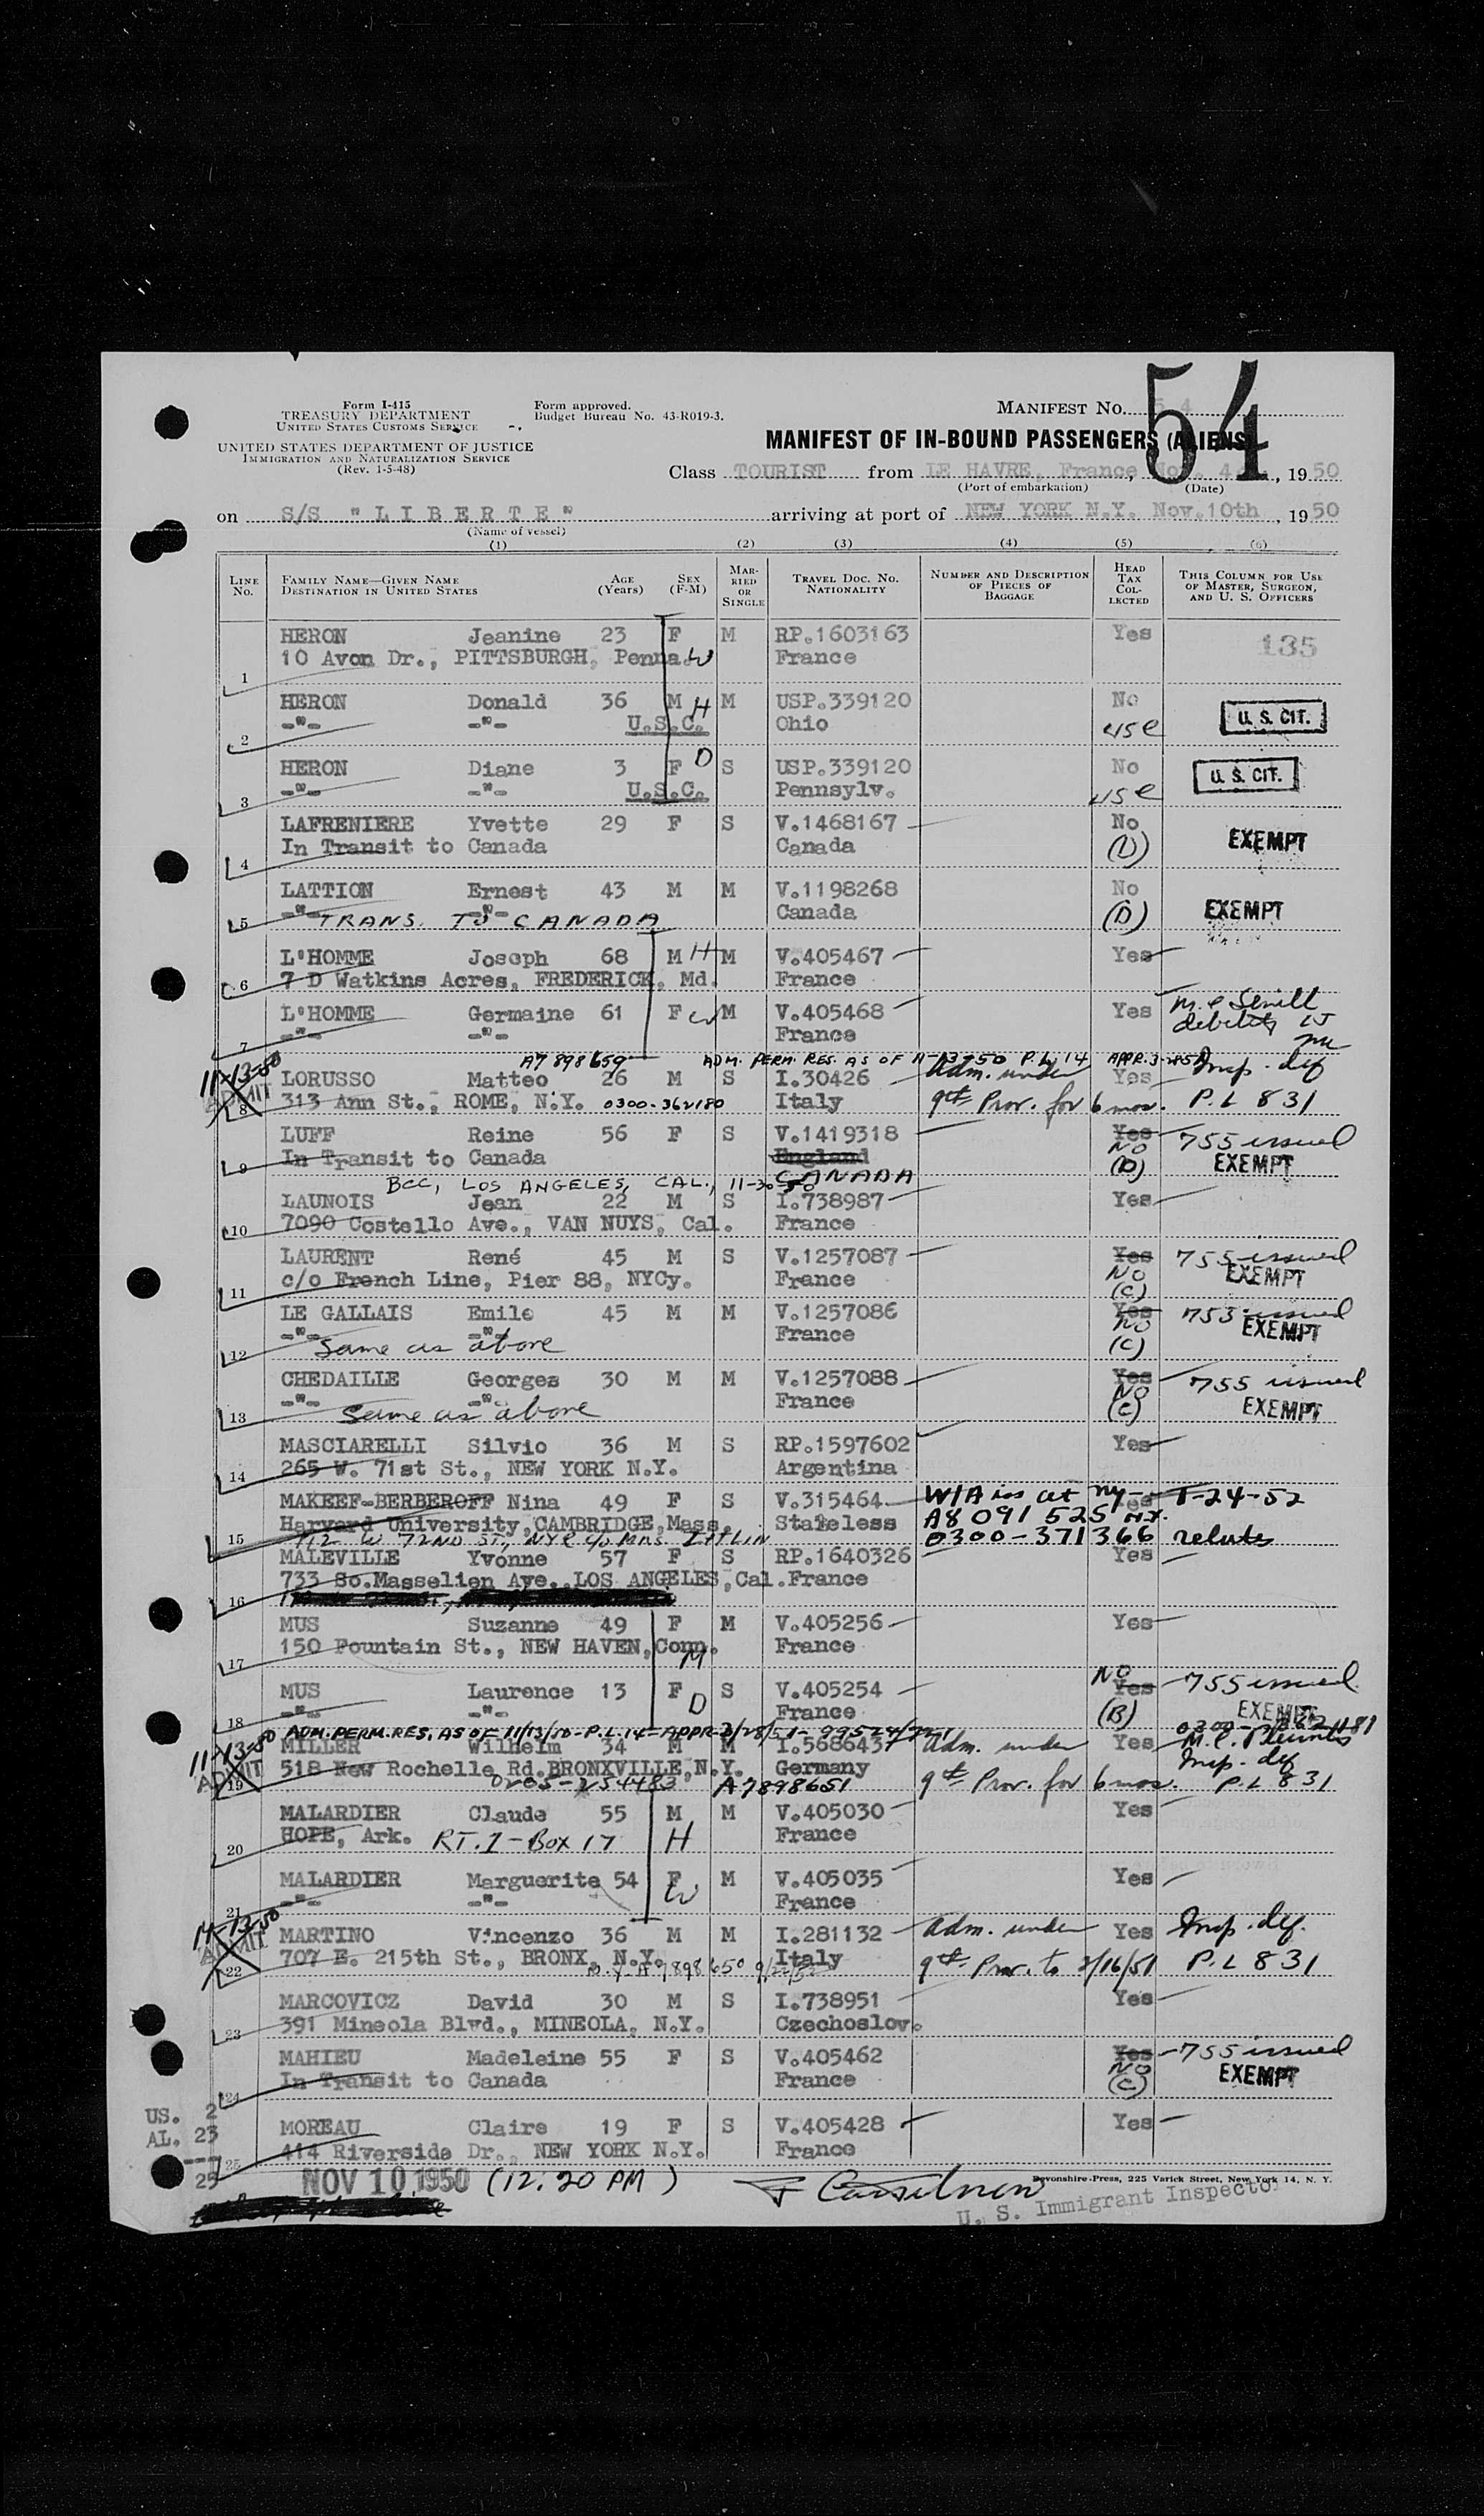 Form I-415
TREASURY DEPARTMENT
UNITED STATES CUSTOMS SERVICE
Form approved.
Budget Bureau No. 43-R019-3.
MANIFEST NO. 54
UNITED STATES DEPARTMENT OF JUSTICE
IMMIGRATION AND NATURALIZATION SERVICE
(Rev. 1-5-48)
MANIFEST OF IN-BOUND PASSENGERS (ALIENS)
Class TOURIST from LE HAVRE, France, Nov. 4, 1950
(Port of embarkation) (Date)
on S/S "LIBERTE" arriving at port of NEW YORK N.Y. Nov.10th, 1950
(Name of vessel)
(1) (2) (3) (4) (5) (6)
LINE No. FAMILY NAME—GIVEN NAME DESTINATION IN UNITED STATES AGE (Years) SEX (F-M) MARRIED OR SINGLE TRAVEL DOC. NO. NATIONALITY NUMBER AND DESCRIPTION OF PIECES OF BAGGAGE HEAD TAX COLLECTED THIS COLUMN FOR USE OF MASTER, SURGEON, AND U. S. OFFICERS
HERON Jeanine 23 F M RP.1603163 Yes 135
1 10 Avon Dr., PITTSBURGH, Penna. W France
HERON Donald 36 M H M USP.339120 No
2 -"- -"- U.S.C. Ohio USC U. S. CIT.
HERON Diane 3 F D S USP.339120 No
3 -"- -"- U.S.C. Pennsylv. USC U. S. CIT.
LAFRENIERE Yvette 29 F S V.1468167 No
4 In Transit to Canada Canada (D) EXEMPT
LATTION Ernest 43 M M V.1198268 No
5 -"- TRANS. TO CANADA Canada (D) EXEMPT
L'HOMME Joseph 68 M H M V.405467 Yes
6 7 D Watkins Acres, FREDERICK, Md. France
L'HOMME Germaine 61 F W M V.405468 Yes M.C. Senile
7 -"- -"- France debility
11-13-50 A7 898659 ADM. PERM. RES. AS OF 11-13-50 P.L. 14
ADMIT LORUSSO Matteo 26 M S I.30426 Adm. under Yes Insp. def
8 313 Ann St., ROME, N.Y. 0300-362180 Italy 9th Prov. for 6 mos. P.L 831
LUFF Reine 56 F S V.1419318 Yes NO 755 issued
9 In Transit to Canada England CANADA (D) EXEMPT
BCC, LOS ANGELES, CAL., 11-30-50
LAUNOIS Jean 22 M S I.738987 Yes
10 7090 Costello Ave., VAN NUYS, Cal. France
LAURENT René 45 M S V.1257087 Yes NO 755 issued
11 c/o French Line, Pier 88, NYCy. France (C) EXEMPT
LE GALLAIS Emile 45 M M V.1257086 Yes NO 753 issued
12 -"- -"- Same as above France (C) EXEMPT
CHEDAILLE Georges 30 M M V.1257088 Yes NO 755 issued
13 -"- -"- Same as above France (C) EXEMPT
MASCIARELLI Silvio 36 M S RP.1597602 Yes
14 265 W. 71st St., NEW YORK N.Y. Argentina
MAKEEF-BERBEROFF Nina 49 F S V.315464 W/A iss at NY Yes 1-24-52
Harvard University, CAMBRIDGE, Mass. Stateless A8 091 525 N.Y.
15 112 W 72ND ST., NYC c/o MRS. ZITLIN 0300-371366
MALEVILLE Yvonne 57 F S RP.1640326 Yes
16 733 So.Masselien Ave. LOS ANGELES, Cal. France
MUS Suzanne 49 F M V.405256 Yes
17 150 Fountain St., NEW HAVEN, Conn. M France
MUS Laurence 13 F D S V.405254 NO Yes 755 issued
18 -"- -"- France (B) EXEMPT
11-13-50 ADM. PERM. RES. AS OF 11/13/50-P.L. 14-APPR-3/28/51-
ADMIT MILLER Wilhelm 34 M M I.568643 Adm. under Yes M.C. Pleuritis
19 518 New Rochelle Rd. BRONXVILLE, N.Y. Germany 9th Prov. for 6 mos. Insp. def P.L 831
0205-254483 A7898651
MALARDIER Claude 55 M M V.405030 Yes
20 HOPE, Ark. RT. 1-Box 17 H France
MALARDIER Marguerite 54 F M V.405035 Yes
21 -"- -"- W France
11-13-50
ADMIT MARTINO Vincenzo 36 M M I.281132 Adm. under Yes Insp. def.
22 707 E. 215th St., BRONX, N.Y. Italy 9th Prov. to 3/16/51 P.L 831
MARCOVICZ David 30 M S I.738951 Yes
23 391 Mineola Blvd., MINEOLA, N.Y. Czechoslov.
MAHIEU Madeleine 55 F S V.405462 Yes NO 755 issued
24 In Transit to Canada France (C) EXEMPT
US. 2
AL. 23
25
MOREAU Claire 19 F S V.405428 Yes
25 414 Riverside Dr., NEW YORK N.Y. France
NOV 10 1950 (12.20 PM)
Devonshire Press, 225 Varick Street, New York 14, N. Y.
U. S. Immigrant Inspector